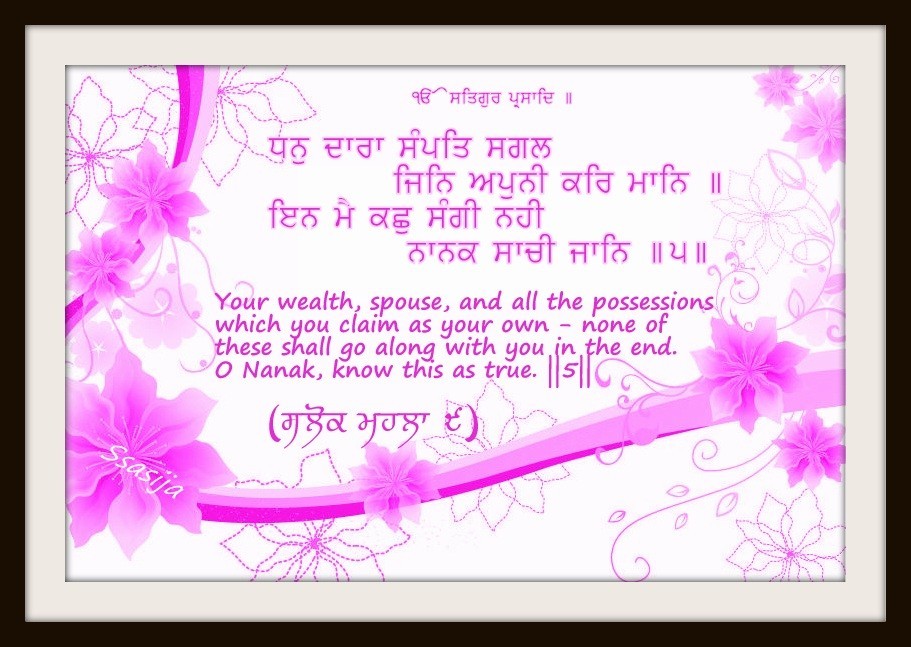 ੴ ਸਤਿਗੁਰ ਪ੍ਰਸਾਦਿ ॥
ਧਨੁ ਦਾਰਾ ਸੰਪਤਿ ਸਗਲ
ਜਿਨਿ ਅਪੁਨੀ ਕਰਿ ਮਾਨਿ ॥
ਇਨ ਮੈ ਕਛੁ ਸੰਗੀ ਨਹੀ
ਨਾਨਕ ਸਾਚੀ ਜਾਨਿ ॥੫॥
Your wealth, spouse, and all the possessions
which you claim as your own – none of
these shall go along with you in the end.
O Nanak, know this as true. ||5||
(ਸਲੋਕ ਮਹਲਾ ੯)
Ssasija